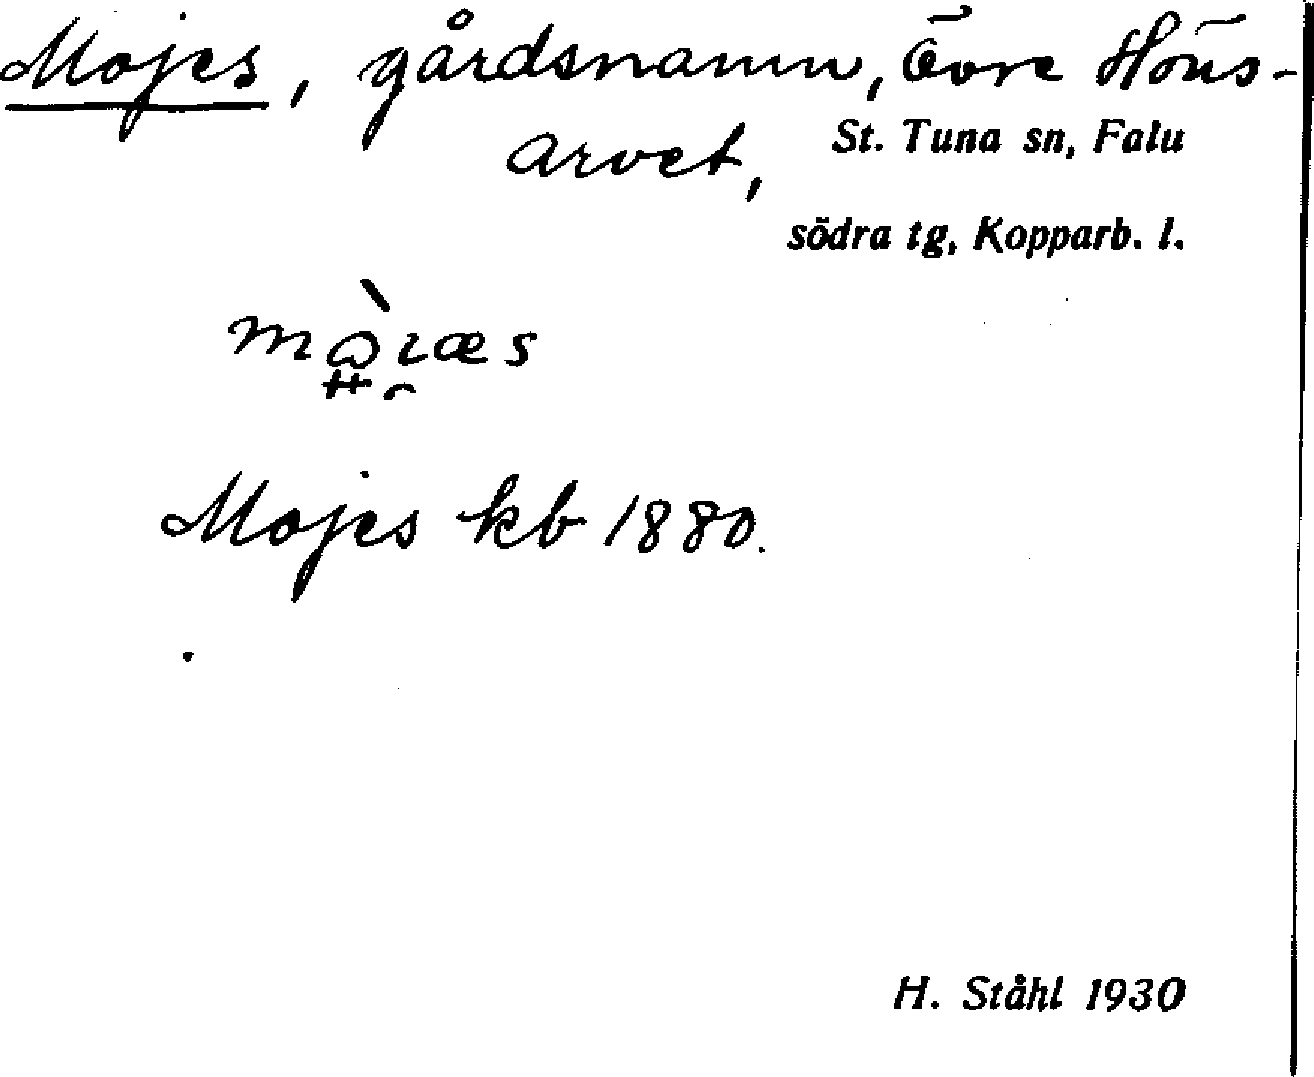 Mojes, gårdsnamn, Övre Höns-
arvet, St. Tuna sn, Falu
södra tg, Kopparb. l.
Mojes kb 1880.
H. Ståhl 1930